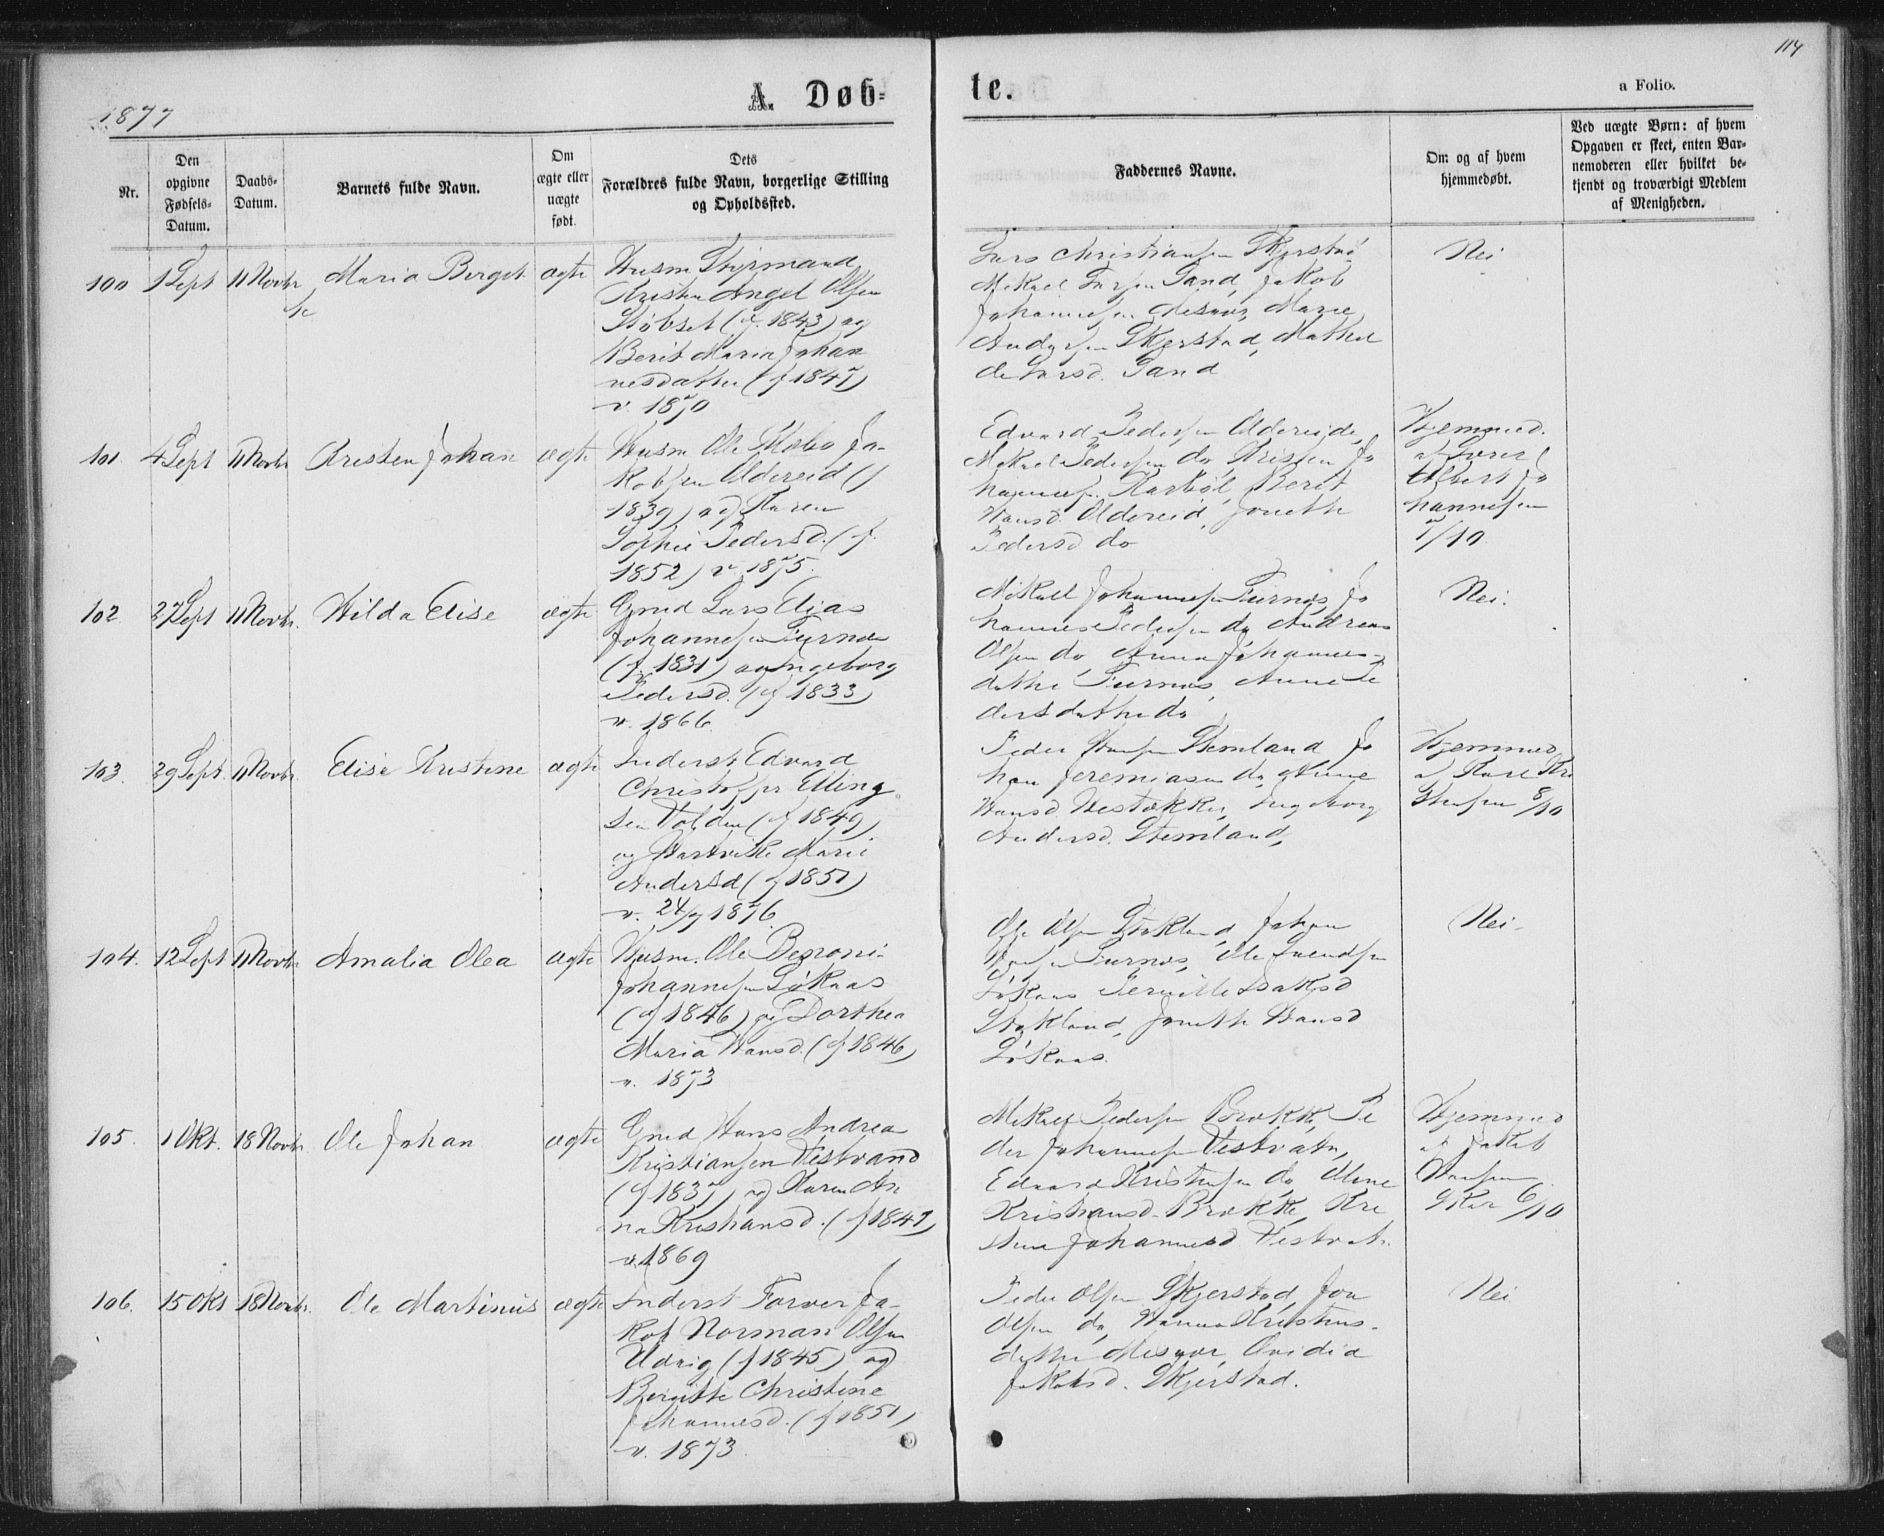 114
1877
A. Døb-
te.
a Folio.
Nr.
Den opgivne Fødsels-Datum.
Daabs-Datum.
Barnets fulde Navn.
Om ægte eller uægte født.
Dets Forældres fulde Navn, borgerlige Stilling og Opholdssted.
Faddernes Navne.
Om og af hvem hjemmedøbt.
Ved uægte Børn: af hvem Opgaven er skeet, enten Barnemoderen eller hvilket bekjendt og troværdigt Medlem af Menigheden.
100 1 Sept 11 Novbr Maria Berget ægte
Husm Styrmand
Kristen Angel Olsen
Støbset (f. 1843) og
Berit Maria Johan
nesdatter (f 1847)
v. 1870
Lars Christiansen Skjerstad
Mikael Larsen Sand, Jakob
Johannesen Misvær, Marie
Andersen Skjerstad, Mathil
de Larsd. Sand
Nei
101. 4 Sept 11 Novbr Kristen Johan ægte
Husm Ole Ja-
kobsen Oldereid (f
1839) og Karen
Sophie Pedersd. (f.
1852) v. 1875.
Edvard Pedersen Oldereide,
Mikael Pedersen do Kristen Jo
hannesen Karbøl, Berit
Hansd. Oldereid, Joneth
Pedersd do
Hjemmed.
af
Albert Jo
hannesen
7/10
102. 27 Sept 11 Novbr. Hilda Elise ægte
Gmd Lars Elias
Johannesen Turnæs
(f. 1831) og Ingeborg
Pedersd. (f 1833)
v. 1866.
Mikal Johannesen Turnæs, Jo
hannes Pedersen do, Andreas
Olsen do, Anna Johannes-
datter Turnæs, Anne Pe
dersdatter do
Nei.
103. 29 Sept. 11 Novbr. Elise Kristine ægte
Inderst Edvard
Christoffer Elling
sen Valden (f 1849)
og Hartvikke Marie
Andersd (f 1851)
v. 24/9 1876.
Peder Hansen Stemland Jo
han Jeremiasen do, Anne
Hansd. Ingeborg
Andersd. Stemland,
Hjemmed
af Karl Kri
stensen 8/10
104. 12 Sept 11 Novbr. Amalia Olea ægte
Husm. Ole Benoni
Johannesen Løkaas
(f 1846) og Dorthea
Maria Hansd. (f 1846)
v. 1873
Ole Olsen Stokland, Johan
Hansen Turnæs, Ole Svendsen
Løkaas Pernille Isaksd
Stokland, Joneth Hansd
Løkaas.
Nei.
105. 1 Okt. 18 Novbr. Ole Johan ægte
Gmd Hans Andrea
Kristiansen Vestvand
(f 1837) og Karen An
na Kristiansd. (f 1847
v. 1869
Mikael Pedersen Brække, Pe
der Johannesen Vestvatn,
Edvard Kristensen do, Oline
Kristiansd. Brække, Kri
stine Johannesd Vestvat.
Hjemmed
a Jakob
Hansen
6/10
106. 15 Okt 18 Novbr. Ole Martinus ægte
Inderst Farver Ja-
kob Norman Olsen
Udvig (f 1845) og
Bergitte Christine
Johannesd. (f 1851)
v. 1873.
Peder Olsen Skjerstad, Jon
Olsen do, Hanna Kristens-
datter Misvær, Ovidia
Jakobsd. Skjerstad.
Nei